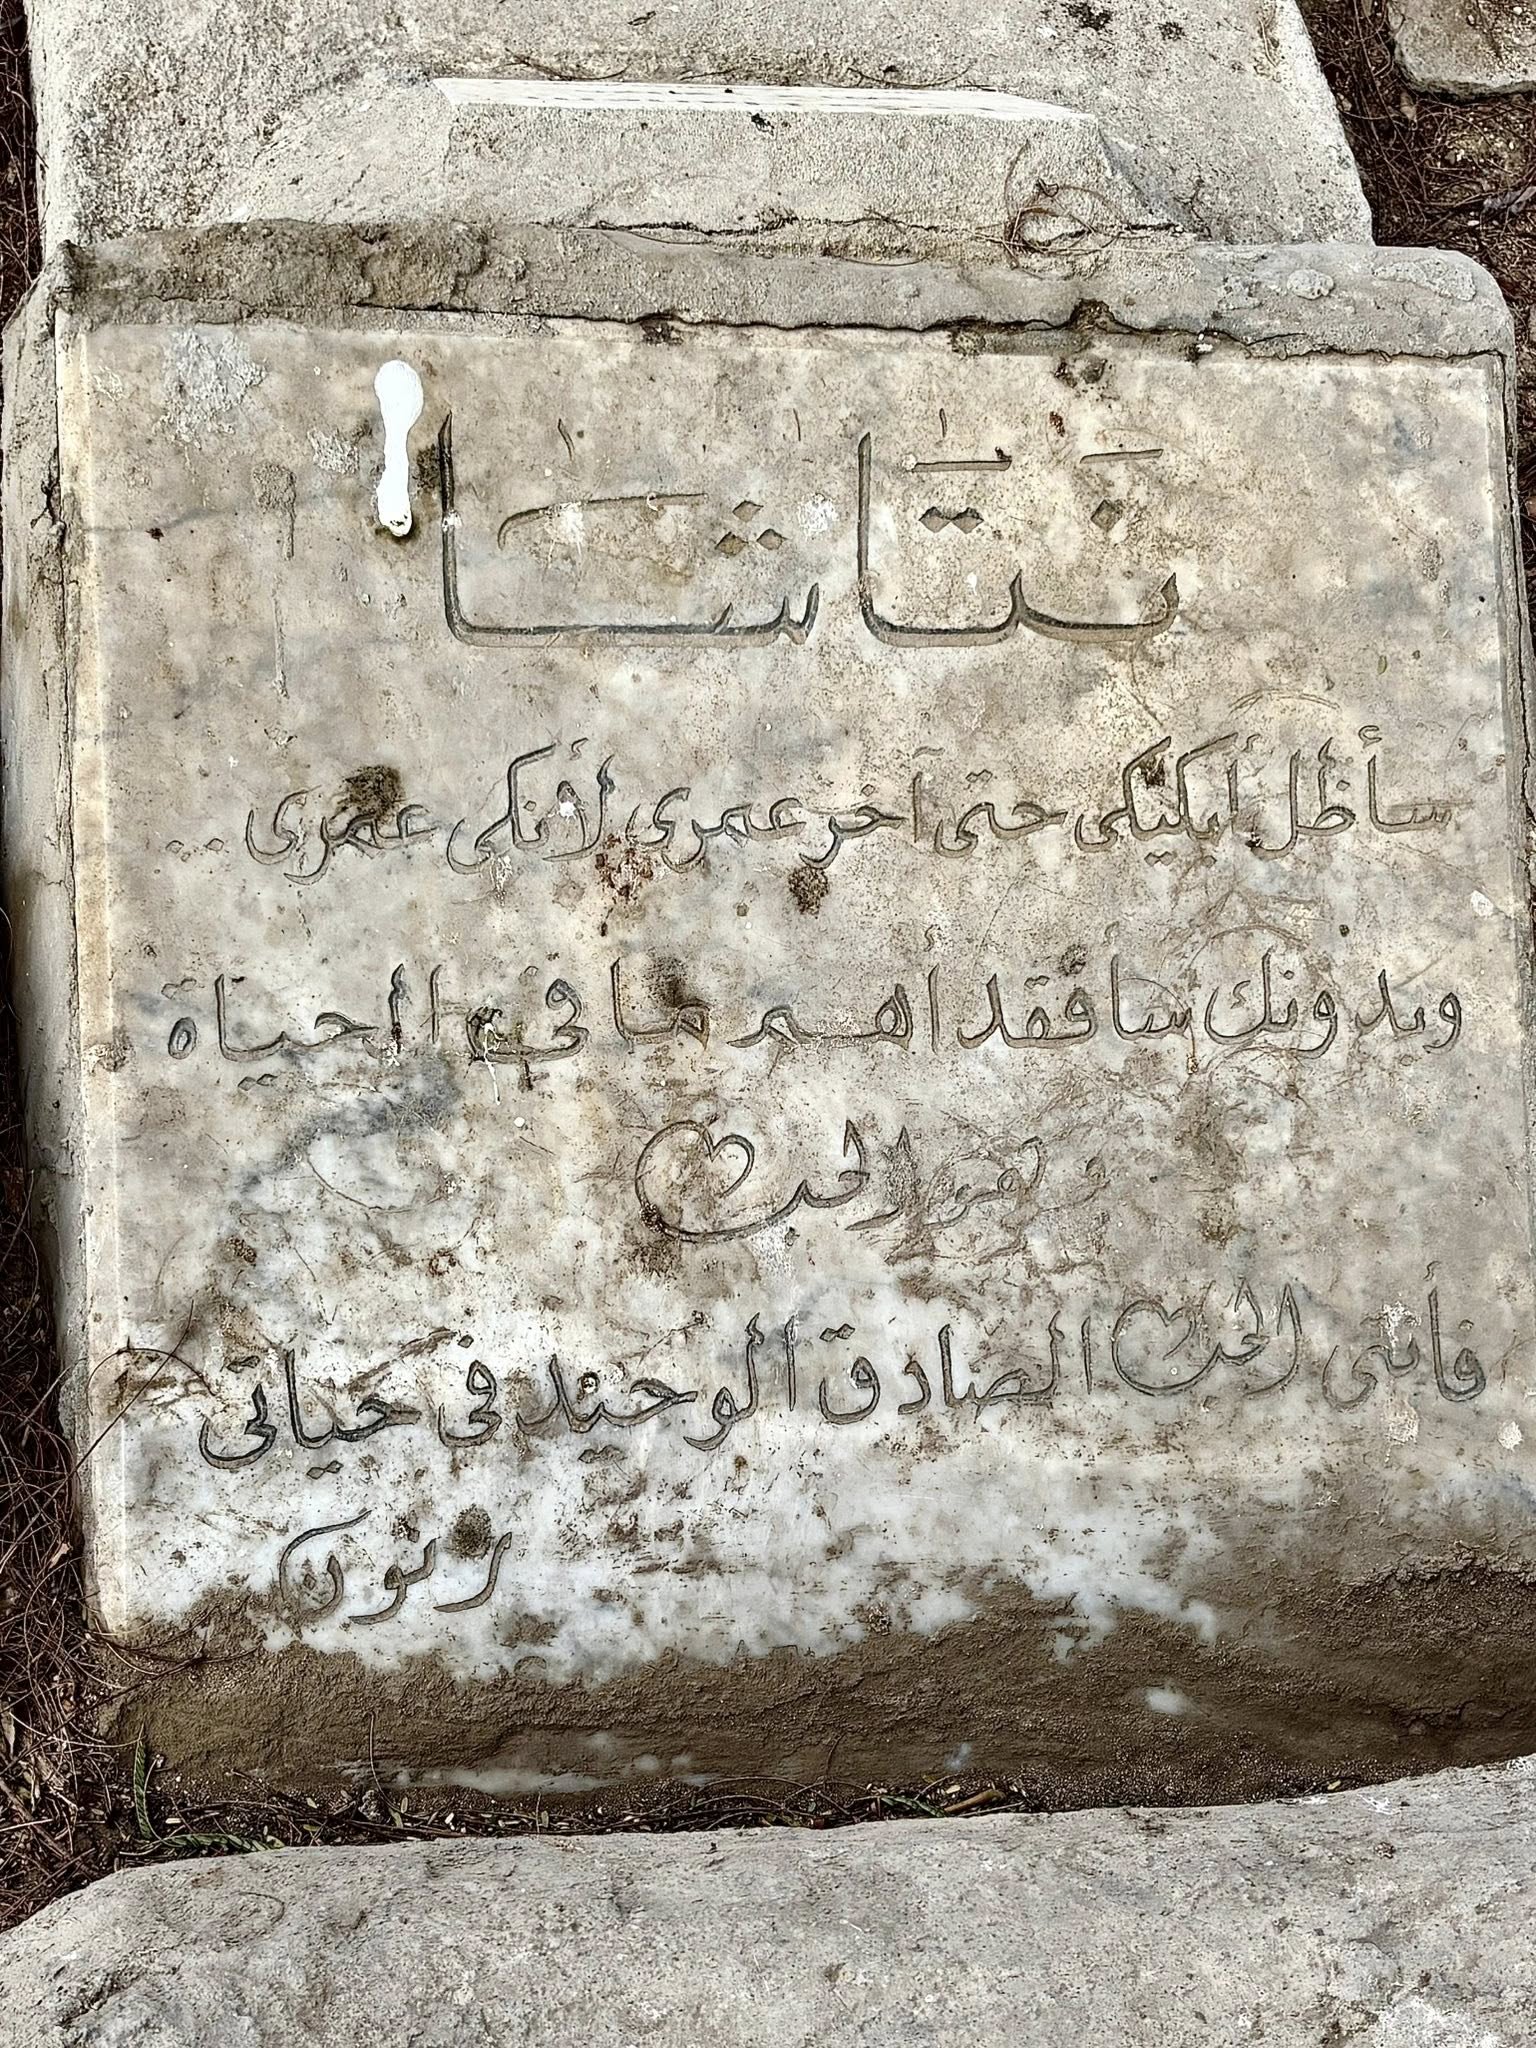 نَتَّاشَا
سأظل أبكيكى حتى آخر عمرى لأنكى عمرى ..
وبدونك سأفقد أهم ما في الحياة
وهو الحب
فأنتى الحب الصادق الوحيد فى حياتى
زنون